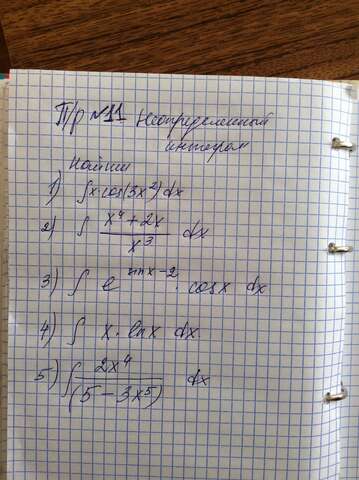 П/р №11 Неопределенный
интеграл
Найти
1) ∫x·cos(3x²)dx
2) ∫ (x⁴+2x)/x³ dx
3) ∫ e^(sinx-2) · cosx dx
4) ∫ x·lnx dx
5) ∫ 2x⁴/(5-3x⁵) dx